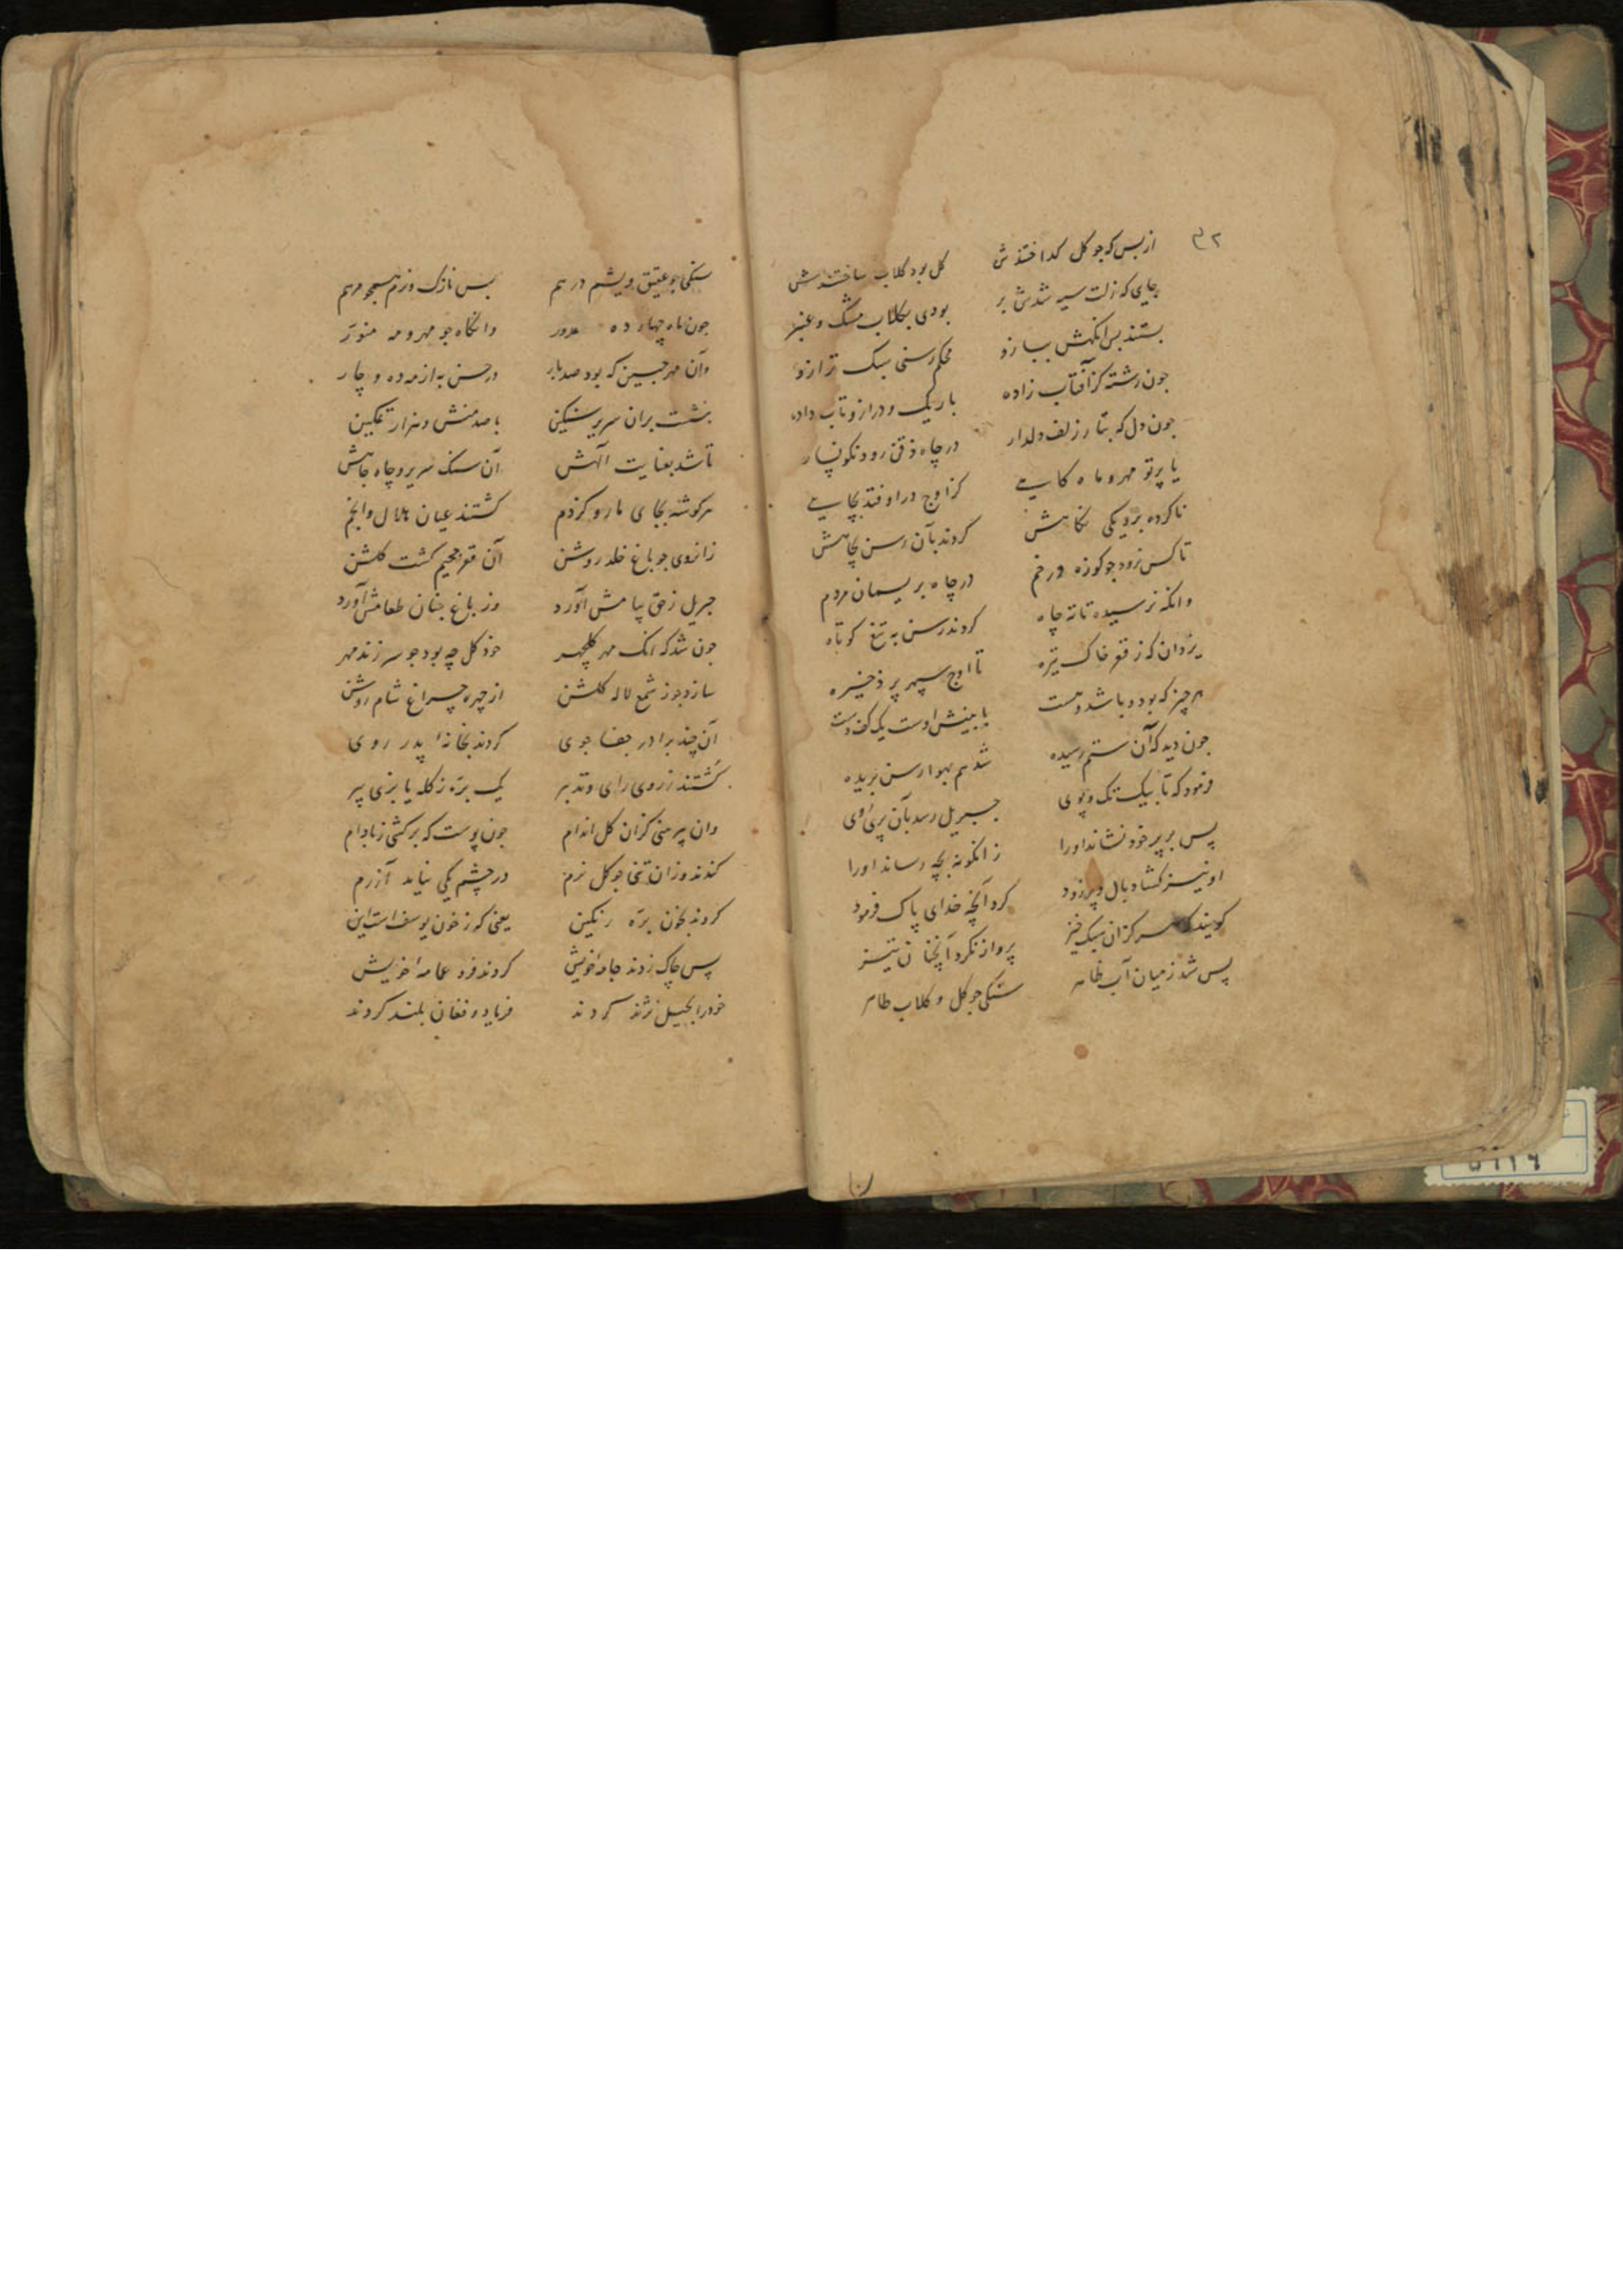 ۴۲
از بس که جو کل کداختندش کل بود کلاب ساختندش
جای که زلت سیه شدش بر بودی بکلاب مشک و عنبر
بستند بس انکهش ببازو محکم رسنی سبک ترازو
جون رشته کز آفتاب زاده باریک و دراز و تاب داده
جون دل که بتار زلف دلدار در چاه ذقن رود نکونسار
یا پرتو مهر و ماه کاهی کز اوج در اوفتد بچاهی
ناکرده بزدیکی نکاهش کردند بآن رسن بچاهش
تا کس نرود جو کوزه در خم در چاه بریسمان مردم
وانکه نرسیده تا ته چاه کردند رسن به تیغ کوتاه
یزدان که ز قعر خاک تیره تا اوج سپهر پر ذخیره
هر چیز که بود و باشد و هست با بینش اوست یک کف دست
جون دید که آن ستم رسیده شد هم بهوا رسن بریده
فرمود که تا بیک تک و پوی جبریل رسد بآن پری روی
پس بر پر خود نشاند او را زانکونه بچه رساند او را
او نیز کشاد بال و پر زود کرد آنچه خدای پاک فرمود
کویند که هرکز آن سبک خیز پرواز نکرد آنچنان تیز
پس شد ز میان آب ظاهر سنکی جو کل و کلاب طاهر
سنکی جو عقیق و یشم در هم بس نازک و نرم همجو مرهم
جون ماه چهارده مدور وانکاه جو مهر و مه منور
وآن مهرجبین که بود صد بار در حسن به از مه ده و چار
بنشست بران سریر سنکین با صد منش و هزار تمکین
تا شد بعنایت آلهش آن سنک سریر و چاه جاهش
هر کوشه بجای مار و کژدم کشتند عیان هلال و انجم
زانروی جو باغ خلد روشن آن قعر جحیم کشت کلشن
جبریل ز حق پیامش آورد وز باغ جنان طعامش آورد
جون شد که انک مهر کلچهر خود کل چه بود جو سر زند مهر
سازد جو ز شمع لاله کلشن از چهره چراغ شام روشن
آن چند برادر جفا جوی کردند بخانه پدر روی
کشتند ز روی رای و تدبیر یک بره ز کله یا بزی پیر
وان پیرهنی کزان کل اندام جون پوست که برکشی ز بادام
کندند وزان تنی جو کل نرم در چشم یکی نیامد آزرم
کردند بخون بره رنکین یعنی که ز خون یوسفست این
پس چاک زدند جامه خویش کردند فرو عمامه خویش
خود را بحیل نژند کردند فریاد و فغان بلند کردند
۵۹۱۶